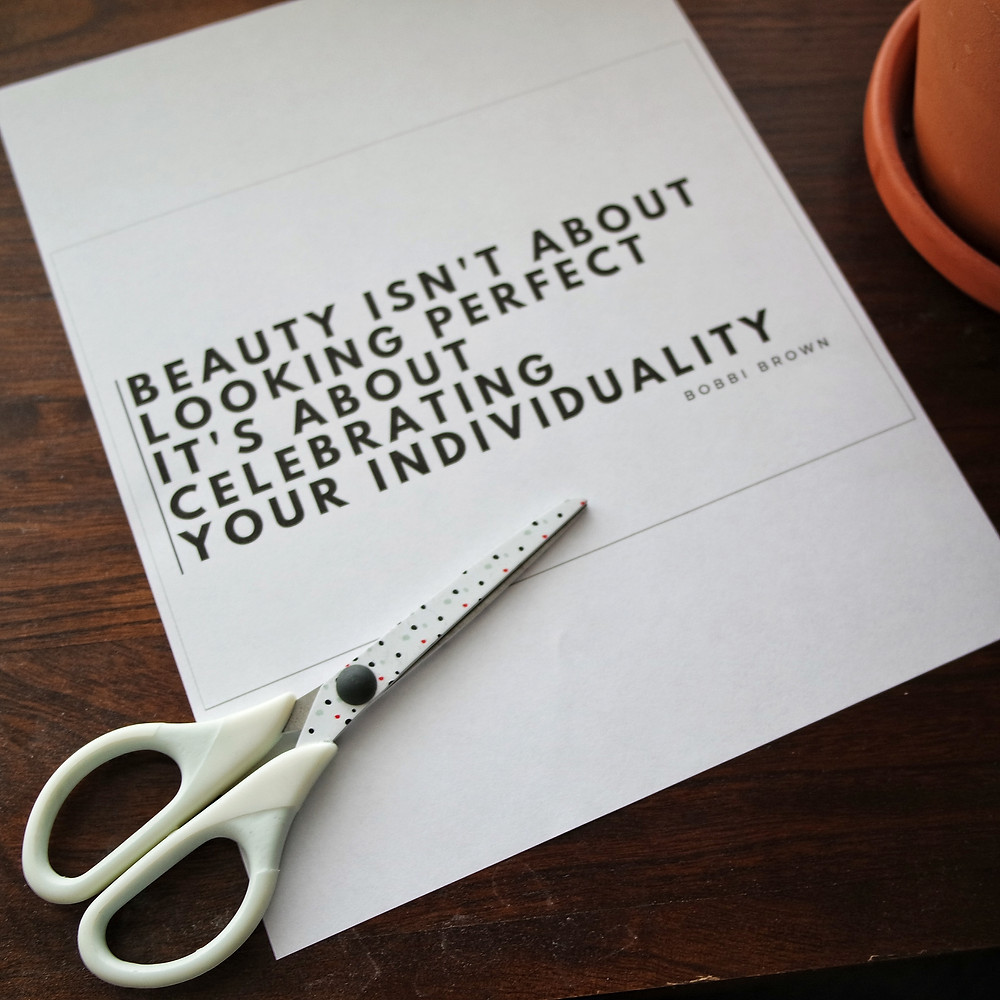 BEAUTY ISN'T ABOUT
LOOKING PERFECT
IT'S ABOUT
CELEBRATING
YOUR INDIVIDUALITY
BOBBI BROWN